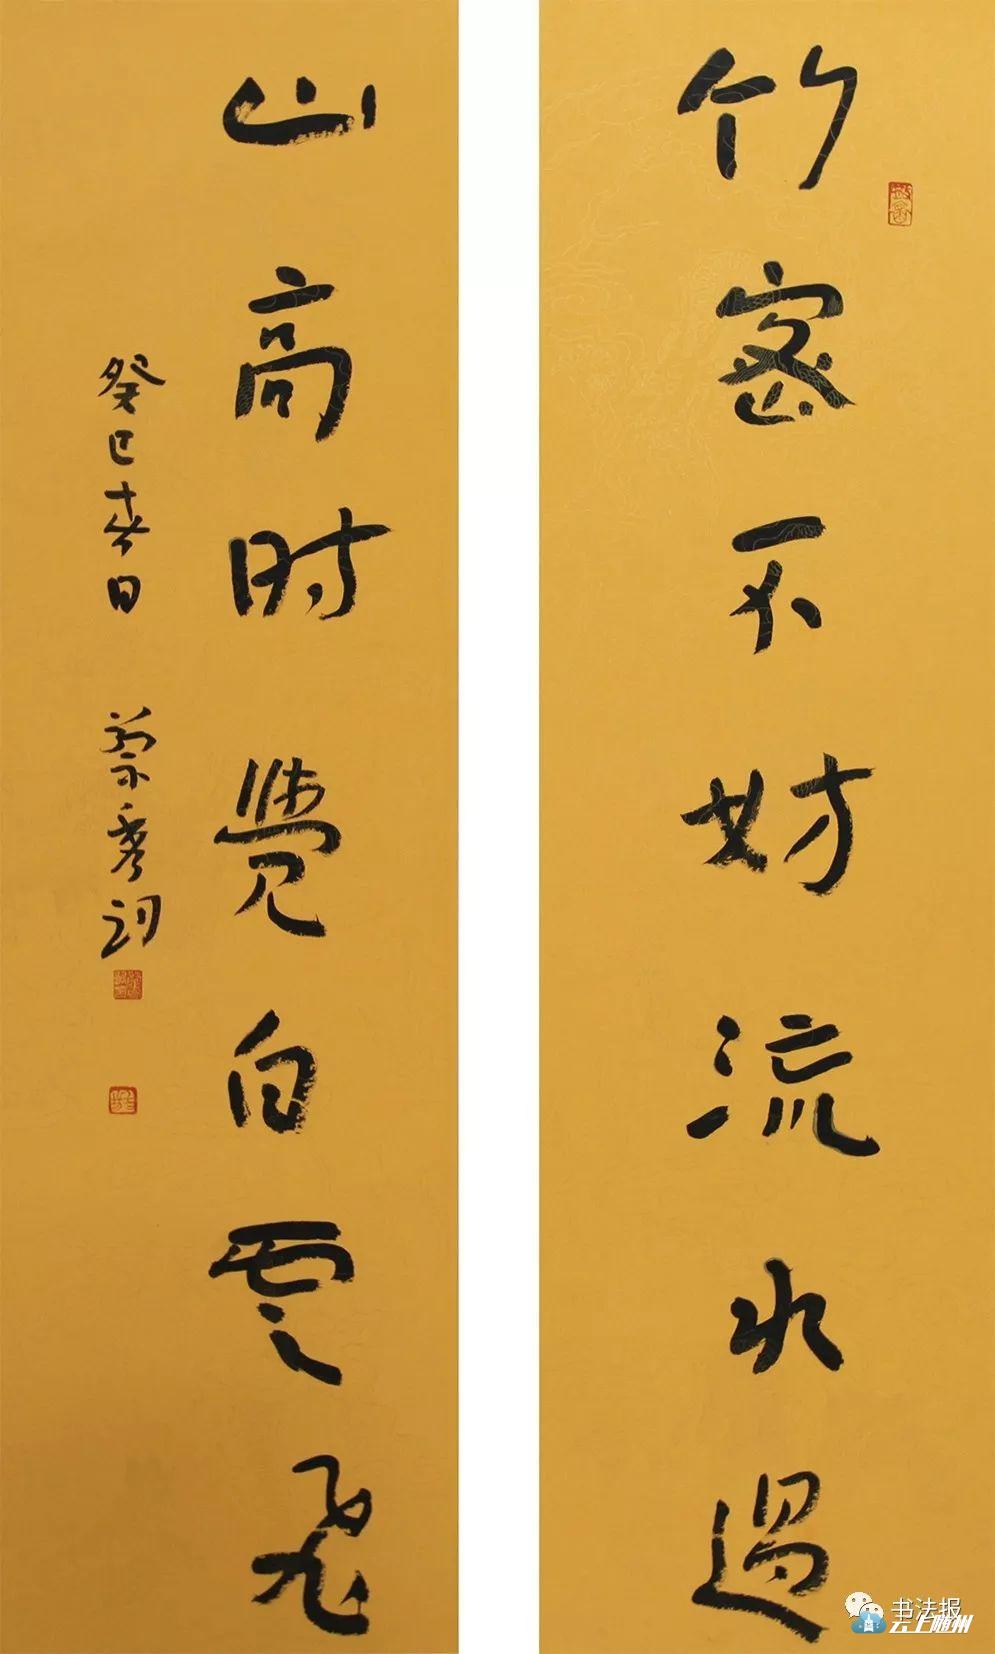 竹密不妨流水過
山高时覺白雲飛
癸巳春日
书法报
云上随州